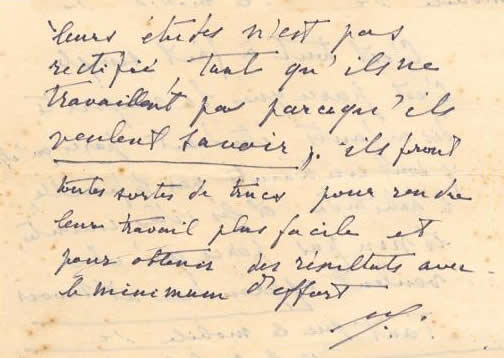 leurs études n'est pas
rectifié, tant qu'ils ne
travaillent pas parceque'ils
veulent savoir, ils front
toutes sortes de trucs pour rendre
leur travail plus facile et
pour obtenir des résultats avec
le minimum d'effort